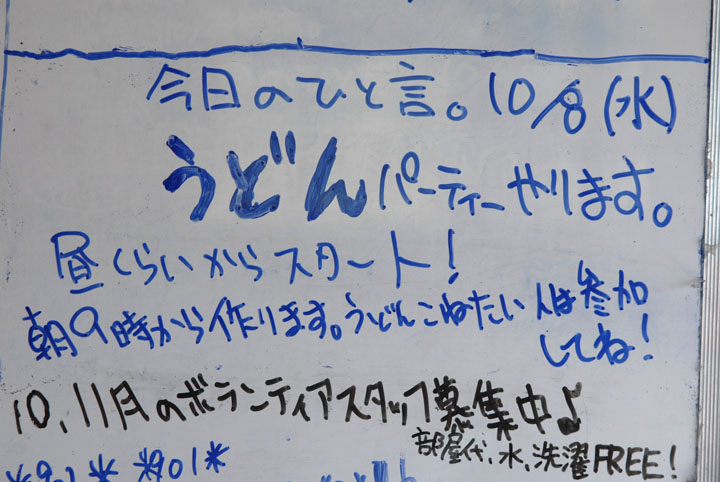 今日のひと言。10/8(水)
うどんパーティーやります。
昼くらいからスタート!
朝9時から作ります。うどんこねたい人は参加
してね!
10、11月のボランティアスタッフ募集中♪
部屋代、水、洗濯FREE!
*901*